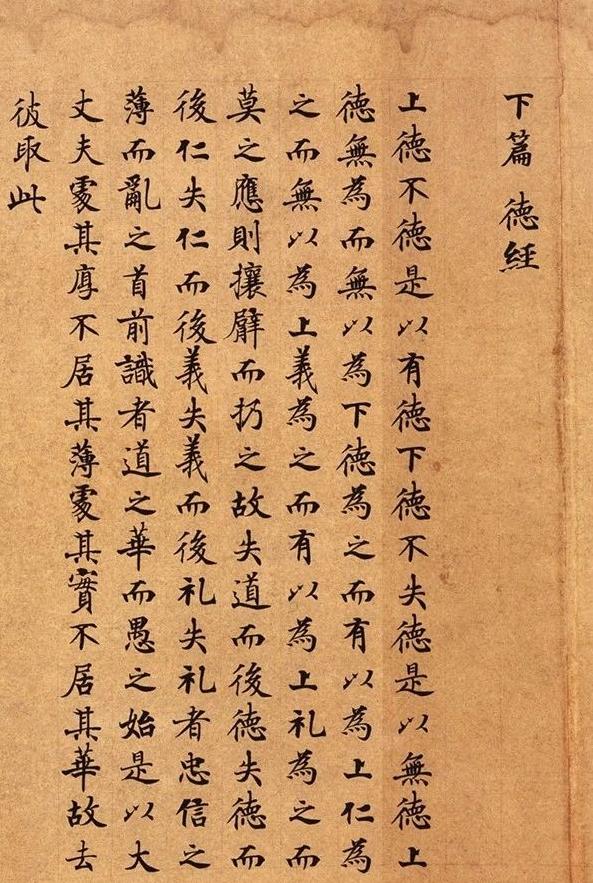 下篇 徳經
上徳不徳是以有徳下徳不失徳是以無徳上
徳無為而無以為下徳為之而有以為上仁為
之而無以為上義為之而有以為上礼為之而
莫之應則攘臂而扔之故失道而後徳失徳而
後仁失仁而後義失義而後礼失礼者忠信之
薄而亂之首前識者道之華而愚之始是以大
丈夫處其厚不居其薄處其實不居其華故去
彼取此